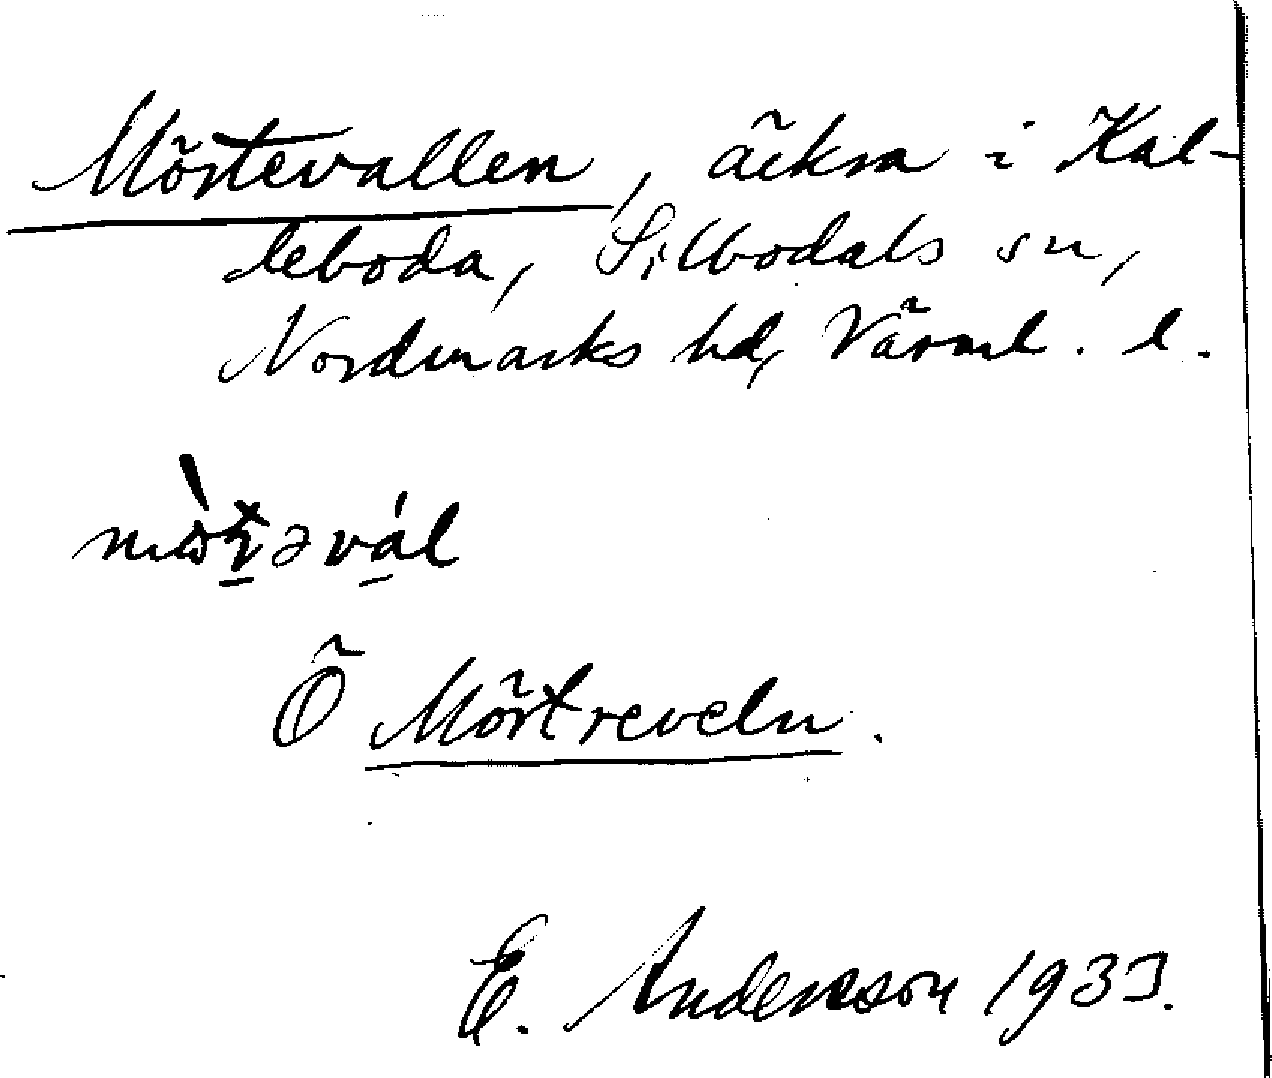 Mörtevallen, äckra i Kal-
leboda, Silbodals sn,
Nordmarks hd, Värml. l.
Ö Mörtreveln.
E. Andersson 1933.